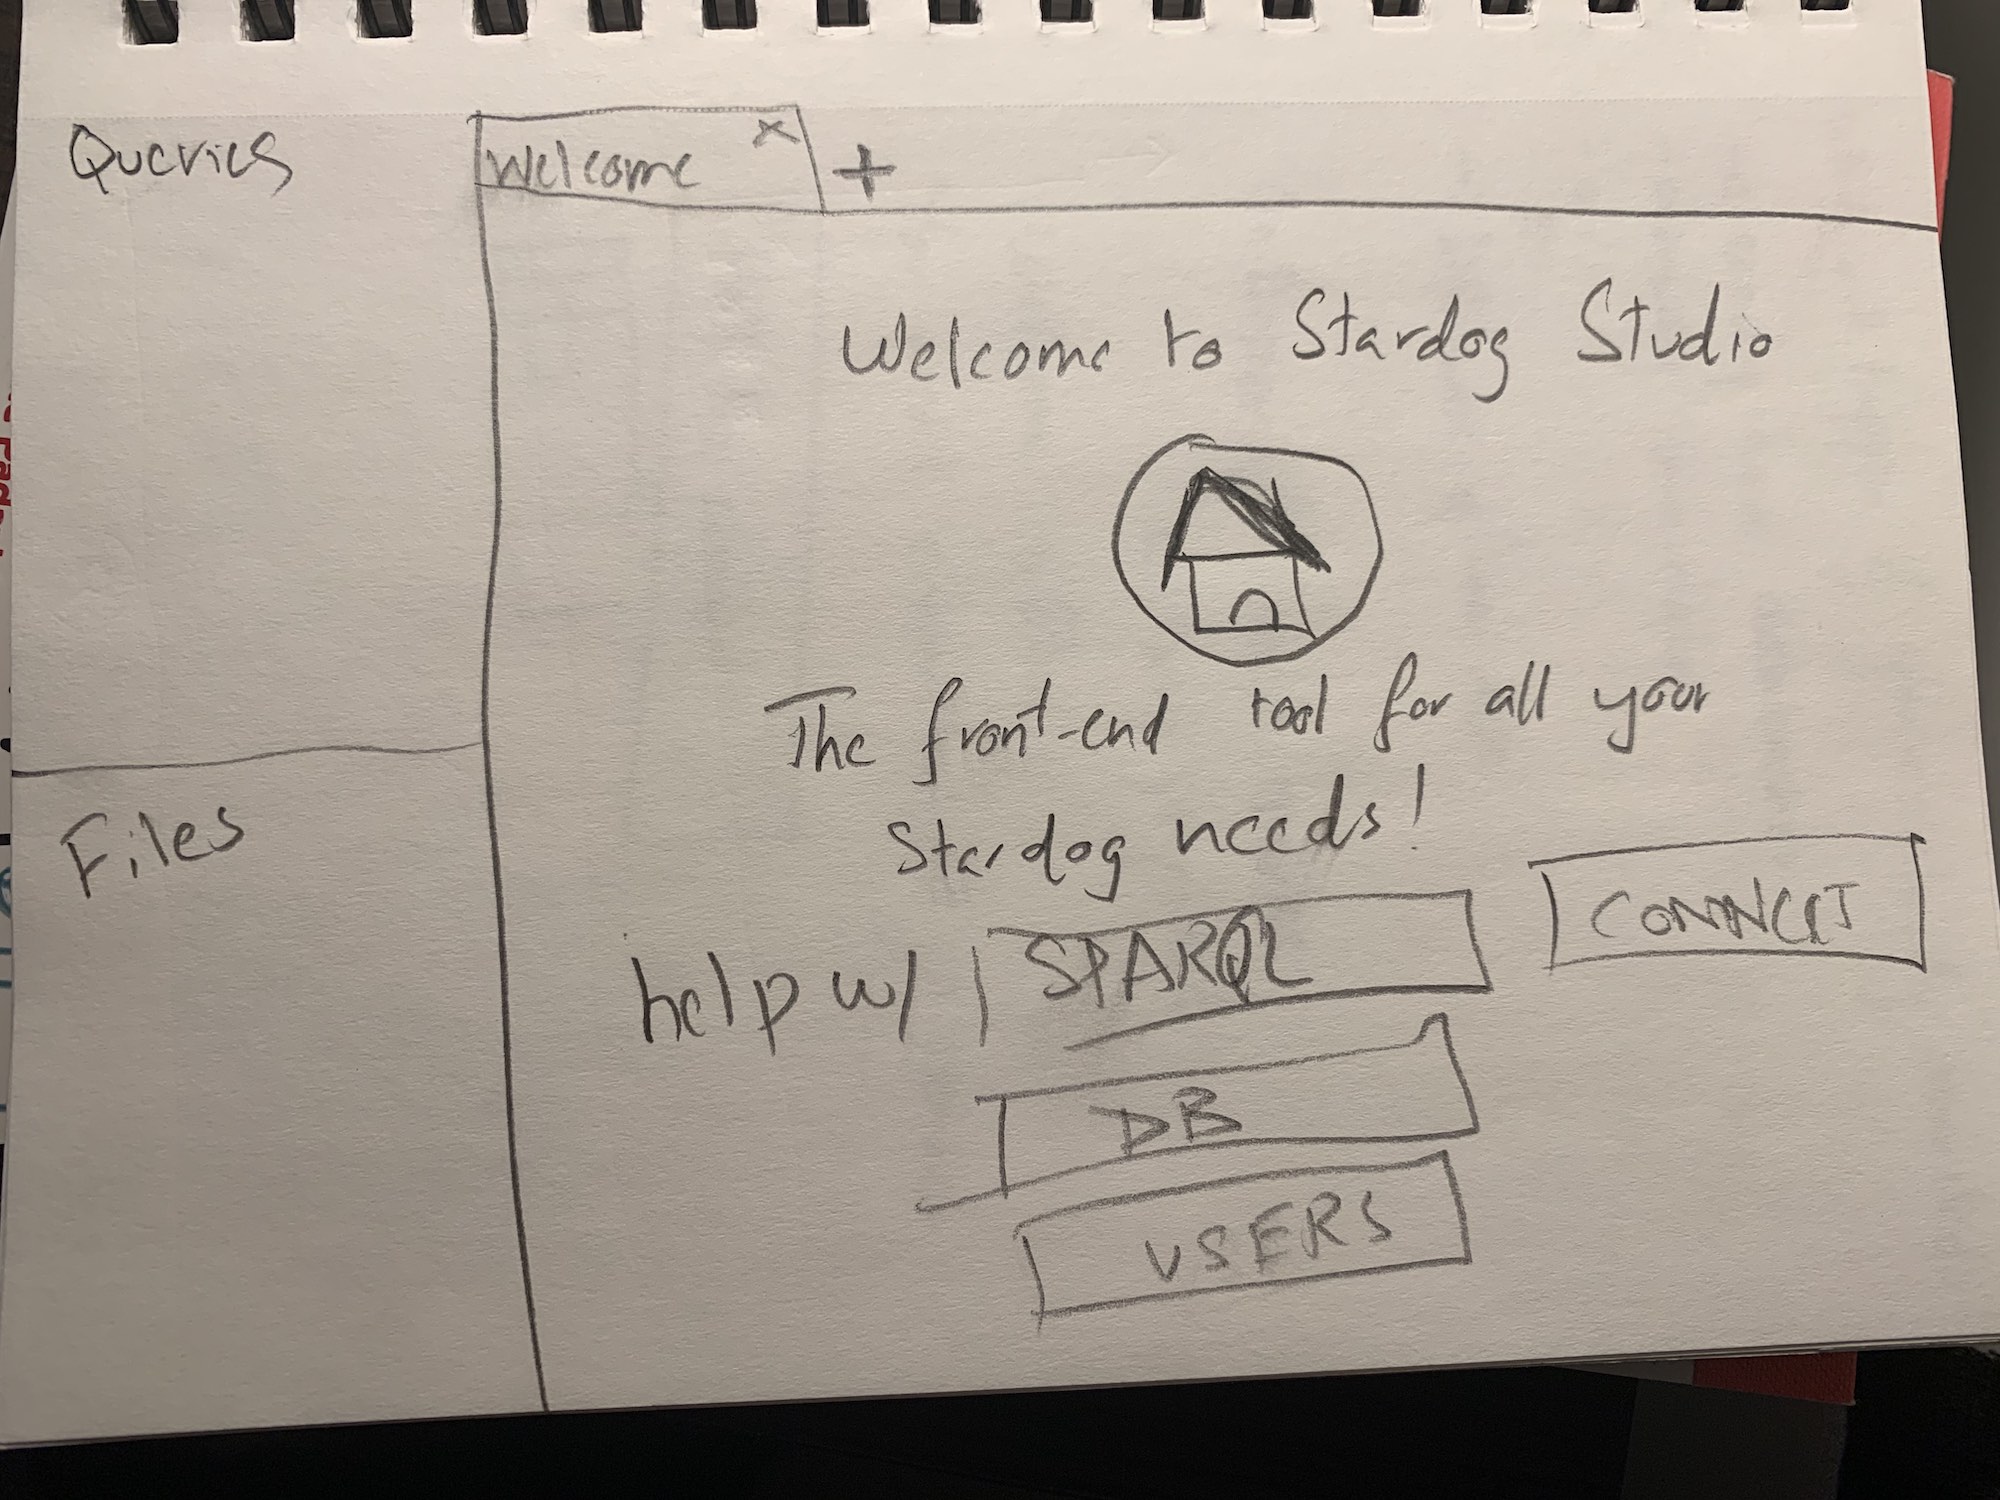 Queries
Welcome x +
Welcome to Stardog Studio
The front-end tool for all your
Stardog needs!
Files
help w/ SPARQL
CONNECT
DB
USERS